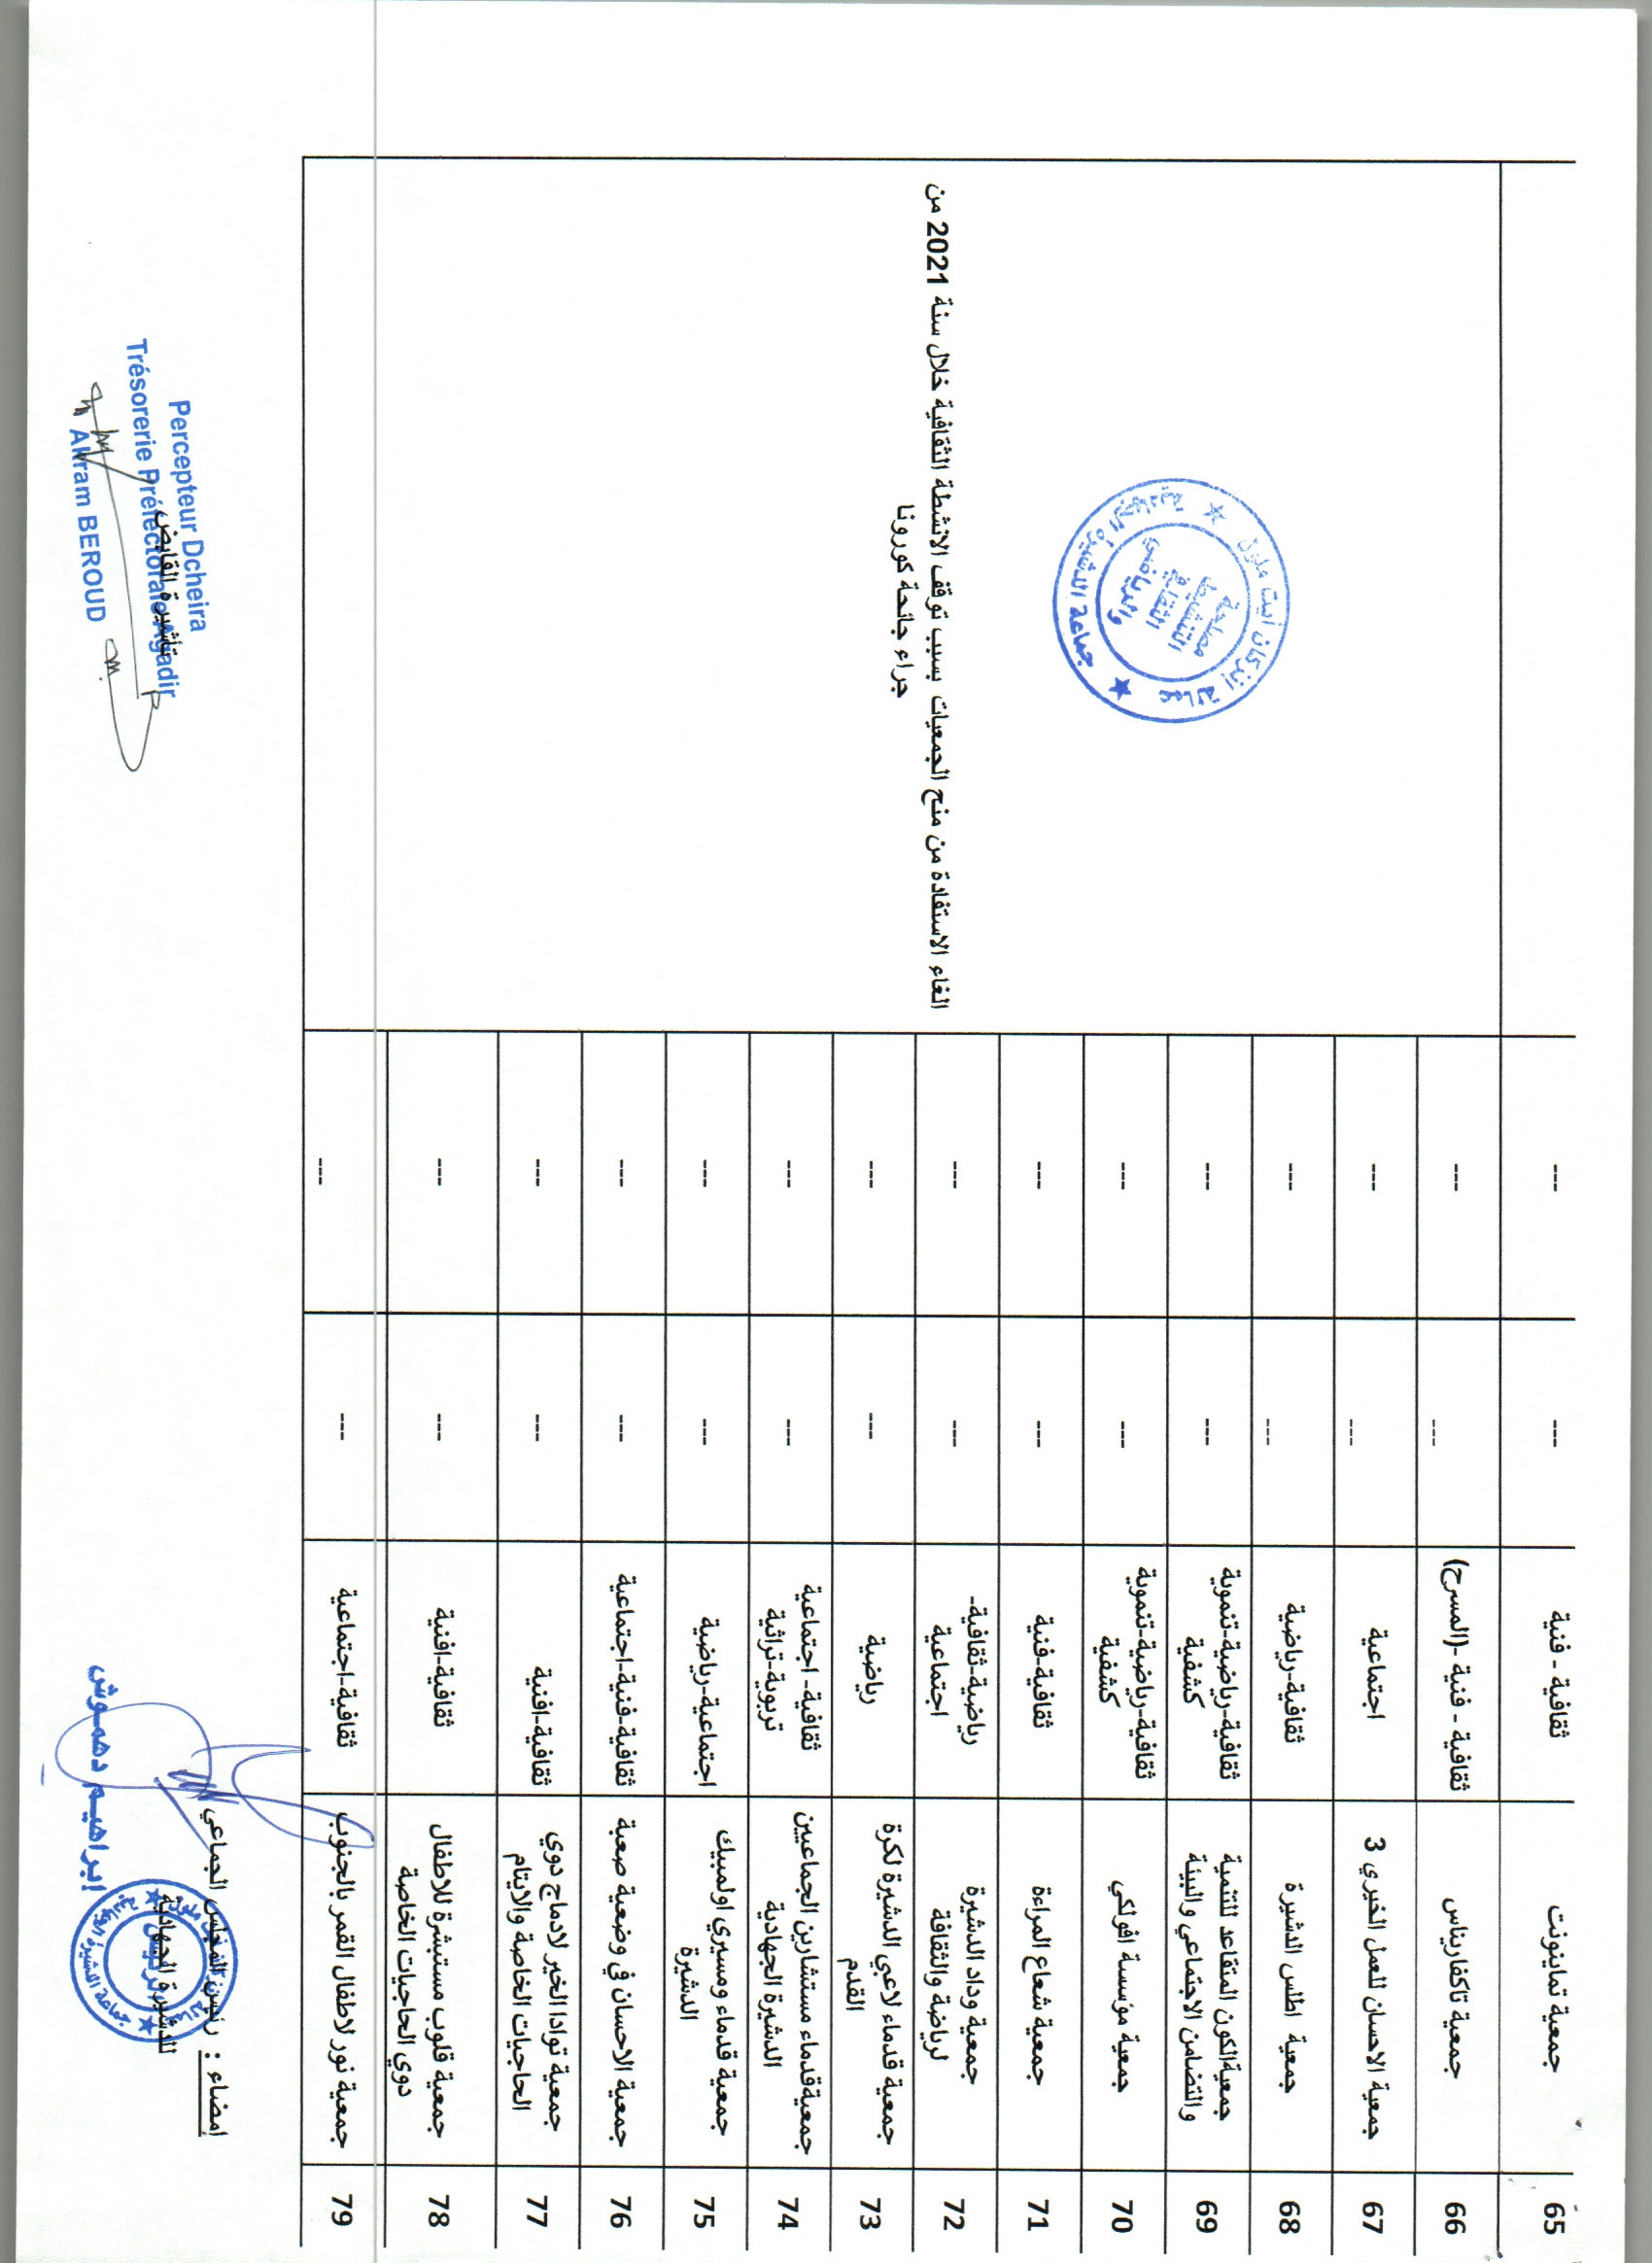 65 جمعية تماينونت ثقافية - فنية --- ---
66 جمعية تاكفاريناس ثقافية - فنية -(المسرح) --- ---
67 جمعية الاحسان للعمل الخيري 3 اجتماعية --- ---
68 جمعية اطلس الدشيرة ثقافية-رياضية --- ---
69 جمعيةالكون المتقاعد للتنمية ثقافية-رياضية-تنموية --- ---
والتضامن الاجتماعي والبيئة كشفية
70 جمعية مؤسسة افولكي ثقافية-رياضية-تنموية --- ---
كشفية
71 جمعية شعاع المراءة ثقافية-فنية --- ---
72 جمعية وداد الدشيرة رياضية-ثقافية- --- ---
لرياضة والثقافة اجتماعية
الغاء الاستفادة من منح الجمعيات بسبب توقف الانشطة الثقافية خلال سنة 2021 من
جراء جائحة كورونا
73 جمعية قدماء لاعبي الدشيرة لكرة رياضية --- ---
القدم
74 جمعيةقدماء مستشارين الجماعيين ثقافية- اجتماعية --- ---
الدشيرة الجهادية تربوية-تراثية
75 جمعية قدماء ومسيري اولمبيك اجتماعية-رياضية --- ---
الدشيرة
76 جمعية الاحسان في وضعية صعبة ثقافية-فنية-اجتماعية --- ---
77 جمعية توادا الخير لادماج دوي ثقافية-افنية --- ---
الحاجيات الخاصة والايتام
78 جمعية قلوب مستبشرة للاطفال ثقافية-افنية --- ---
دوي الحاجيات الخاصة
79 جمعية نور لاطفال القمر بالجنوب ثقافية-اجتماعية --- ---
جماعة الدشيرة الجهادية
عمالة إنزكان أيت ملول
مصلحة
التنشيط
الثقافي
والرياضي
إمضاء : رئيس المجلس الجماعي
للدشيرة الجهادية
الرئيس
جماعة الدشيرة الجهادية
إبراهيم دهموش
تأشيرة القابض
Percepteur Dcheira
Trésorerie Préfectorale Agadir
Akram BEROUD